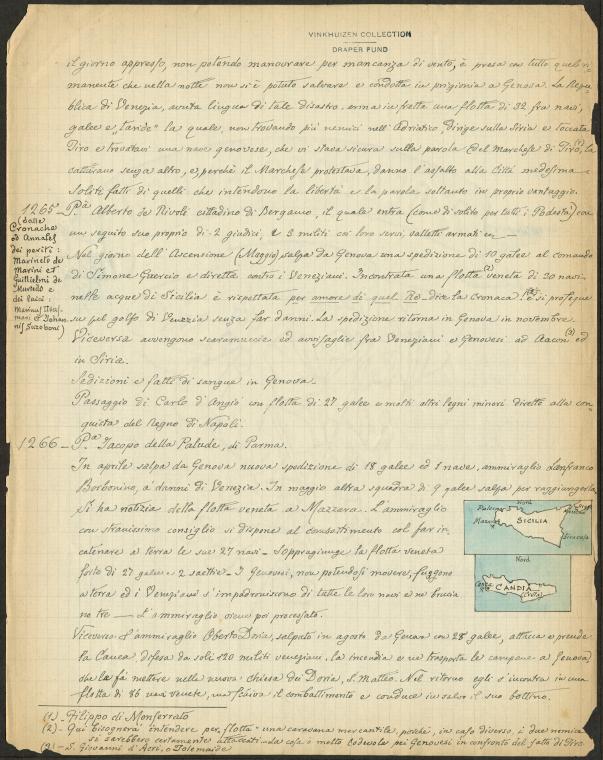 VINKHUIZEN COLLECTION
DRAPER FUND
il giorno appresso, non potendo manovrare per mancanza di vento, è presa con tutto quel ri-
manente che nella notte non si è potuto salvare e condotta in prigionia a Genova. La Repu-
blica di Venezia, avuta lingua di tale disastro, arma in fretta una flotta di 32 fra navi,
galee e "taride" la quale, non trovando più nemici nell'Adriatico, dirige sulla Siria e toccata
Tiro e trovatavi una nave genovese, che vi stava sicura sulla parola del Marchese di Tiro (1), la
catturano senza altro, e, perchè il Marchese protestava, danno l'assalto alla città medesima.
Soliti fatti di quelli che intendono la libertà e la parola soltanto in proprio vantaggio.
1265 - P.tà Alberto de Rivoli cittadino di Bergamo, il quale entra (come di solito per tutti i Podestà) con
un seguito suo proprio di 2 giudici, e 3 militi coi loro servi, valletti armati ecc.
(dalle
Cronache
ed Annales
dei periti:
Marineto de
Marini et
Guillielmi de
Murtedo e
dei laici:
Marinus Usus
maris et Johan-
nis Suzoboni)
Nel giorno dell'Ascensione (Maggio) salpa da Genova una spedizione di 10 galee al comando
di Simone Guercio e diretta contro i Veneziani. Incontrata una flotta (2) veneta di 30 navi
nelle acque di Sicilia è rispettata per amore di quel Re - dice la cronaca. E si prosegue
su pel golfo di Venezia senza far danni. La spedizione ritorna in Genova in novembre.
Viceversa avvengono scaramuccie ed avvisaglie fra Veneziani e Genovesi ad Accon (3) ed
in Siria.
Sedizioni e fatti di sangue in Genova.
Passaggio di Carlo d'Angiò con flotta di 27 galee e molti altri legni minori diretto alla con-
quista del Regno di Napoli.
1266 - P.tà Jacopo della Palude, di Parma.
In aprile salpa da Genova nuova spedizione di 18 galee ed 1 nave, ammiraglio Lanfranco
Borbonino, a danni di Venezia. In maggio altra squadra di 9 galee salpa per raggiungerla.
Si ha notizia della flotta veneta a Mazzera. L'ammiraglio
con stranissimo consiglio si dispone al combattimento col far in-
catenare a terra le sue 27 navi - Sopraggiunge la flotta veneta
forte di 27 galee e 2 saettie - I Genovesi, non potendosi movere, fuggono
a terra ed i Veneziani s'impadroniscono di tutte le loro navi e ne brucia
no tre — L'ammiraglio viene poi processato.
Nord
Palermo
Mazara
SICILIA
Siracusa
Nord
Canea
CANDIA
(Creta)
Viceversa l'ammiraglio Oberto Doria, salpato in agosto da Genova con 28 galee, attacca e prende
la Canea, difesa da soli 120 militi veneziani, la incendia e ne trasporta le campane a Genova,
che le fa mettere nella nuova chiesa dei Doria, S. Matteo. Nel ritorno egli s'incontra in una
flotta di 36 navi venete, ma schiva il combattimento e conduce in salvo il suo bottino.
(1) - Filippo di Monferrato
(2) - Qui bisognerà intendere per "flotta" una carovana mercantile, poichè, in caso diverso, i due nemici
si sarebbero certamente attaccati - La cosa è molto lodevole pei Genovesi in confronto del fatto di Tiro.
(3) - S. Giovanni d'Acri, o Tolemaide